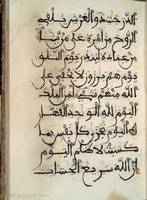 الدرجت ذو العرش يلقي
الروح من امره على من يشا
من عباده لينذر يوم التلق
يوم هم برزون لا يخفى على
الله منهم شيء لمن الملك
اليوم لله الوحد القهار
اليوم تجزى كل نفس بما
كسبت لا ظلم اليوم
ان الله سريع الحساب